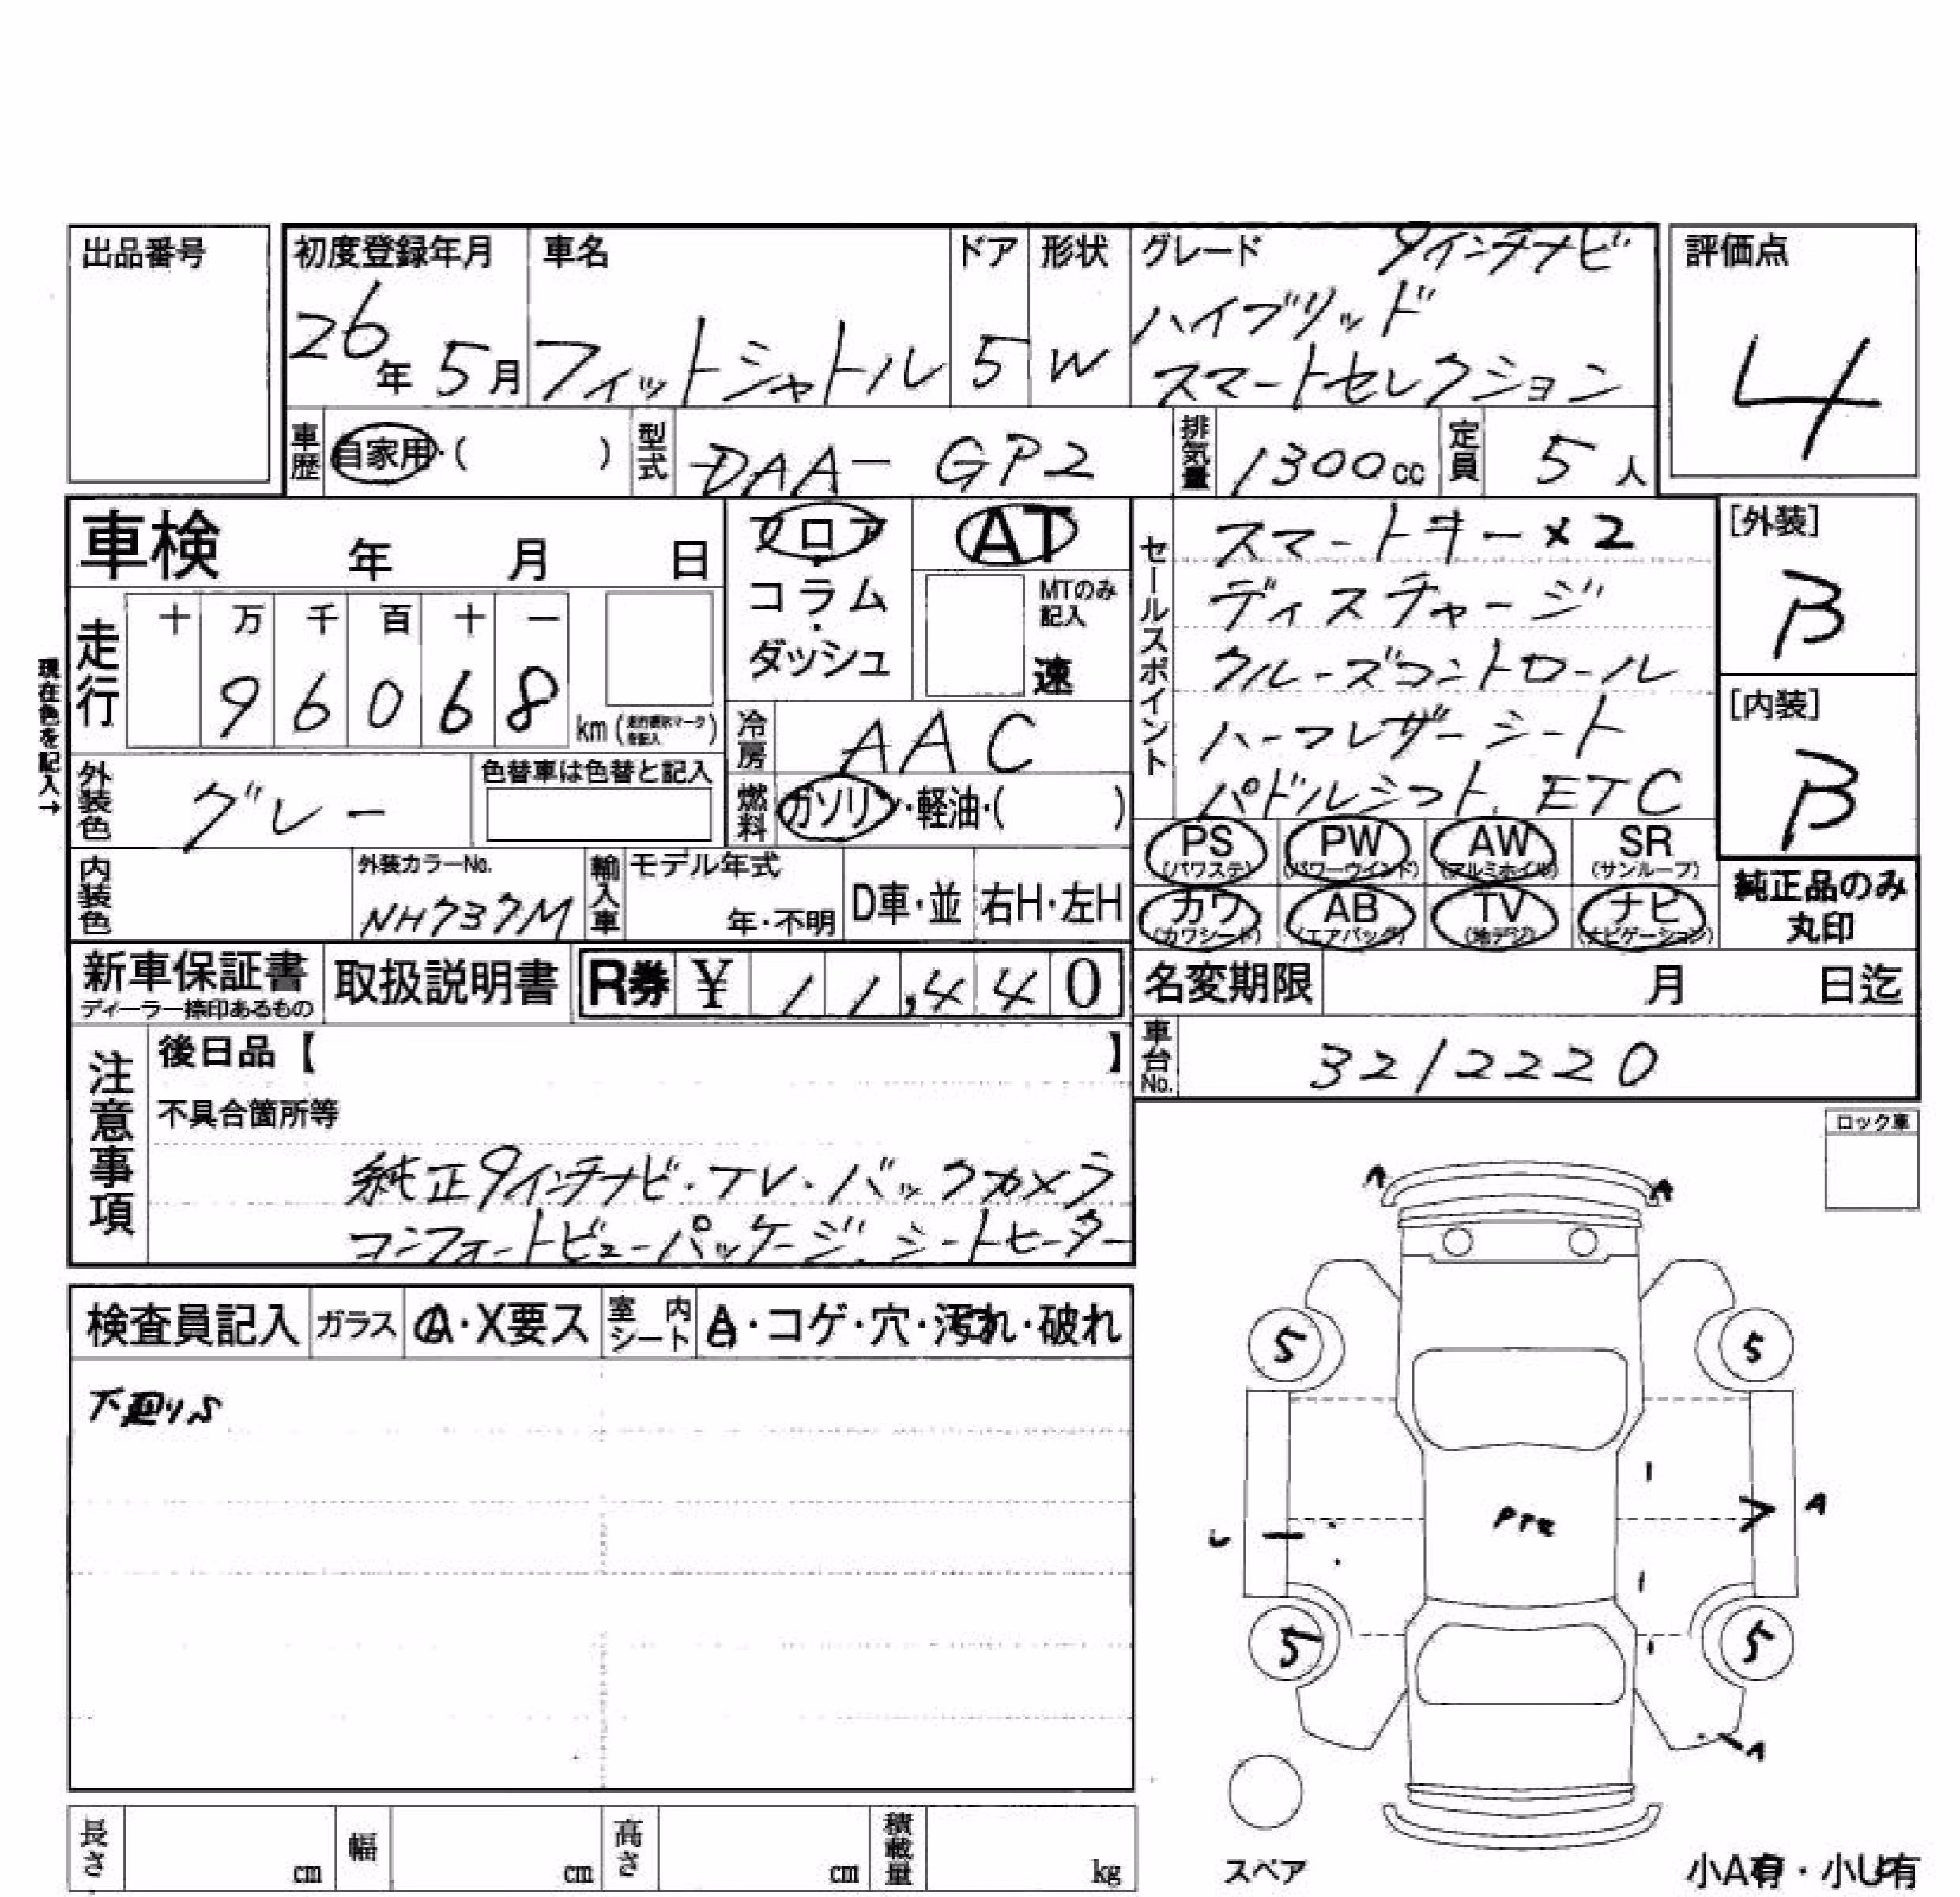 出品番号
初度登録年月
26年 5月
車名
フィットシャトル
ドア
5
形状
W
グレード
9インチナビ
ハイブリッド
スマートセレクション
評価点
4
車歴
自家用・( )
型式
DAA- GP2
排気量
1300cc
定員
5人
車検 年 月 日
フロア
・
コラム
・
ダッシュ
AT
MTのみ
記入
速
セールスポイント
スマートキー×2
ディスチャージ
クルーズコントロール
ハーフレザーシート
パドルシフト、ETC
[外装]
B
[内装]
B
現在色を記入→
走行
十 万 千 百 十 一
9 6 0 6 8
km
冷房
AAC
外装色
グレー
色替車は色替と記入
燃料
ガソリン・軽油・( )
PS (パワステ) PW (パワーウインド) AW (アルミホイル) SR (サンルーフ)
カワ (カワシート) AB (エアバッグ) TV (地デジ) ナビ (ナビゲーション)
純正品のみ
丸印
内装色
外装カラーNo.
NH737M
輸入車
モデル年式
年・不明
D車・並
右H・左H
新車保証書
ディーラー捺印あるもの
取扱説明書
R券 ¥ 11,440
名変期限 月 日迄
車台No.
3212220
注意事項
後日品【 】
不具合箇所等
純正9インチナビ・TV・バックカメラ
コンフォートビューパッケージ、シートヒーター
ロック車
検査員記入
ガラス
A・X要ス
室内シート
A・コゲ・穴・汚れ・破れ
下廻りS
A A
5 5
A
5 5
A
スペア
長さ cm
幅 cm
高さ cm
積載量 kg
小A有・小U有